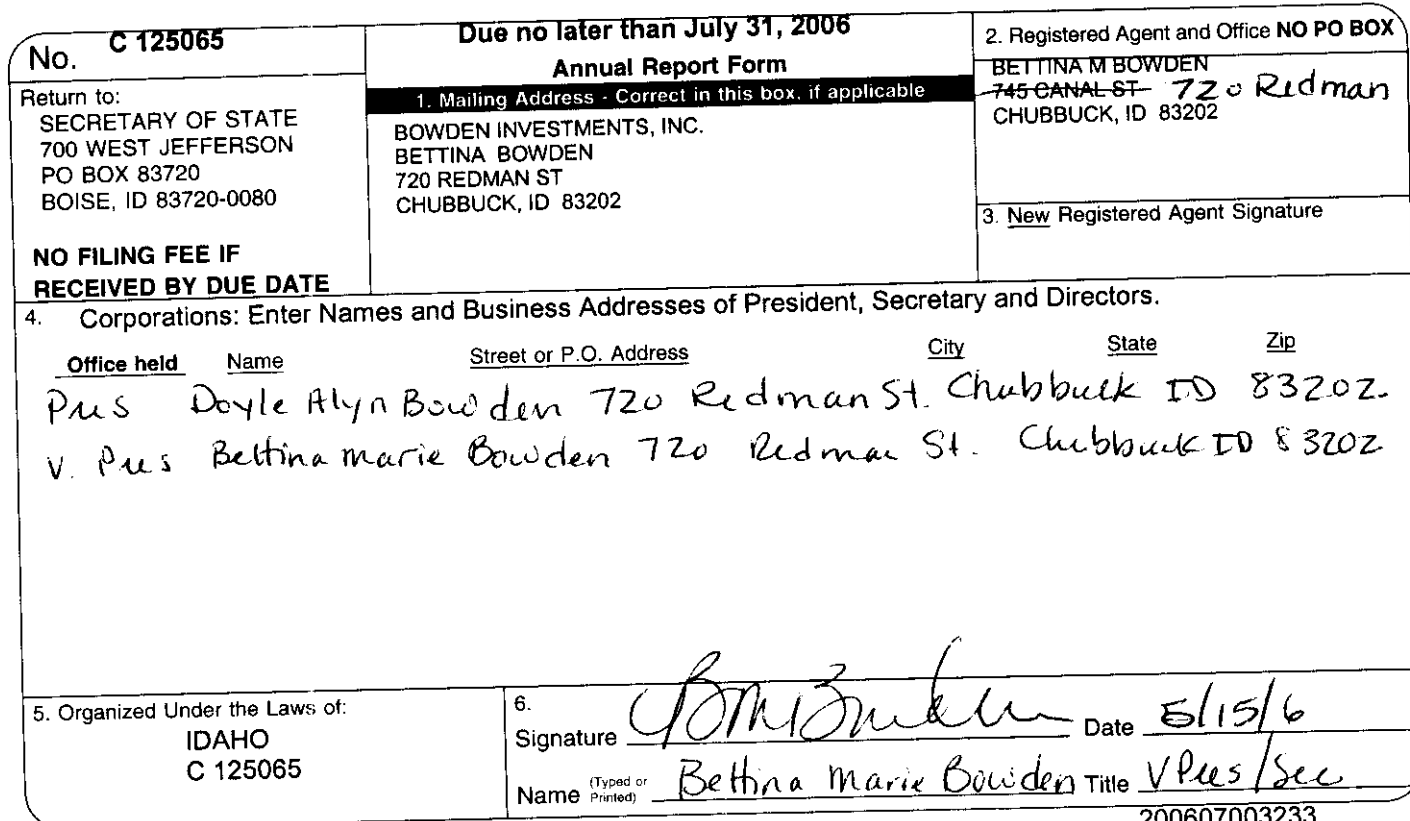 No. C 125065
Return to:
SECRETARY OF STATE
700 WEST JEFFERSON
PO BOX 83720
BOISE, ID 83720-0080
NO FILING FEE IF
RECEIVED BY DUE DATE
Due no later than July 31, 2006
Annual Report Form
1. Mailing Address - Correct in this box, if applicable
BOWDEN INVESTMENTS, INC.
BETTINA BOWDEN
720 REDMAN ST
CHUBBUCK, ID 83202
2. Registered Agent and Office NO PO BOX
BETTINA M BOWDEN
745 CANAL ST 720 Redman
CHUBBUCK, ID 83202
3. New Registered Agent Signature
4. Corporations: Enter Names and Business Addresses of President, Secretary and Directors.
Office held Name Street or P.O. Address City State Zip
Pres Doyle Alyn Bowden 720 Redman St. Chubbuck ID 83202.
V. Pres Bettina marie Bowden 720 Redman St. Chubbuck ID 83202
5. Organized Under the Laws of:
IDAHO
C 125065
6.
Signature Date 5/15/6
Name (Typed or Printed) Bettina Marie Bowden Title V Pres/Sec
200607003233